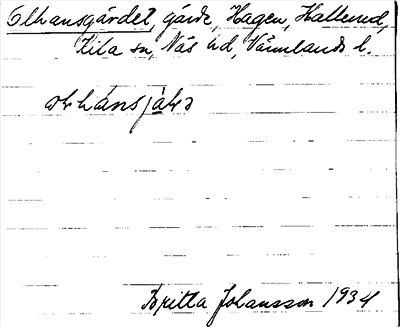 Olhansgärdet, gärde, Hagen, Hallerud,
Kila sn, Näs hd, Värmlands l.
Britta Johansson 1934